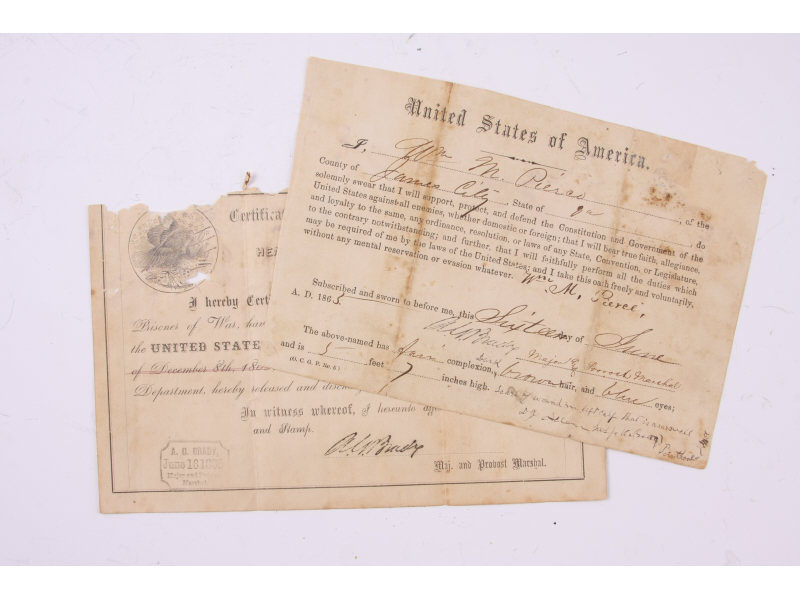 United States of America.
I, Wm M. Pierce, of the
County of James City, State of Va, do
solemnly swear that I will support, protect, and defend the Constitution and Government of the
United States against all enemies, whether domestic or foreign; that I will bear true faith, allegiance,
and loyalty to the same, any ordinance, resolution, or laws of any State, Convention, or Legislature,
to the contrary notwithstanding; and further, that I will faithfully perform all the duties which
may be required of me by the laws of the United States; and I take this oath freely and voluntarily,
without any mental reservation or evasion whatever. Wm M. Pierce,
Subscribed and sworn to before me, this Sixteen day of June
A. D. 1865
A. G. Brady Major & Provost Marshal
The above-named has fair complexion, brown hair, and blue eyes;
and is 5 feet 7 inches high.
(O. C. G. P. No. 6.)
Certific
HEA
I hereby Cert
Prisoner of War, hav
the UNITED STATE
of December 8th, 186
Department, hereby released and disch
In witness whereof, I hereunto
and Stamp.
A. G. Brady
Maj. and Provost Marshal.
A. G. BRADY,
June 16 1865
Major and Provost
Marshal.